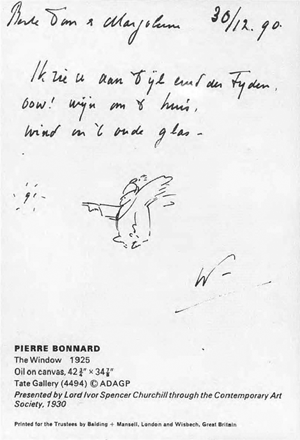 Beste Dom & 30/12.90
Ik zie u aan 't eind der Tyden,
wijn om 't huis,
wind om 't oude glas -
'91
W -
PIERRE BONNARD
The Window 1925
Oil on canvas, 42¾" × 34⅞"
Tate Gallery (4494) © ADAGP
Presented by Lord Ivor Spencer Churchill through the Contemporary Art
Society, 1930
Printed for the Trustees by Balding + Mansell, London and Wisbech, Great Britain